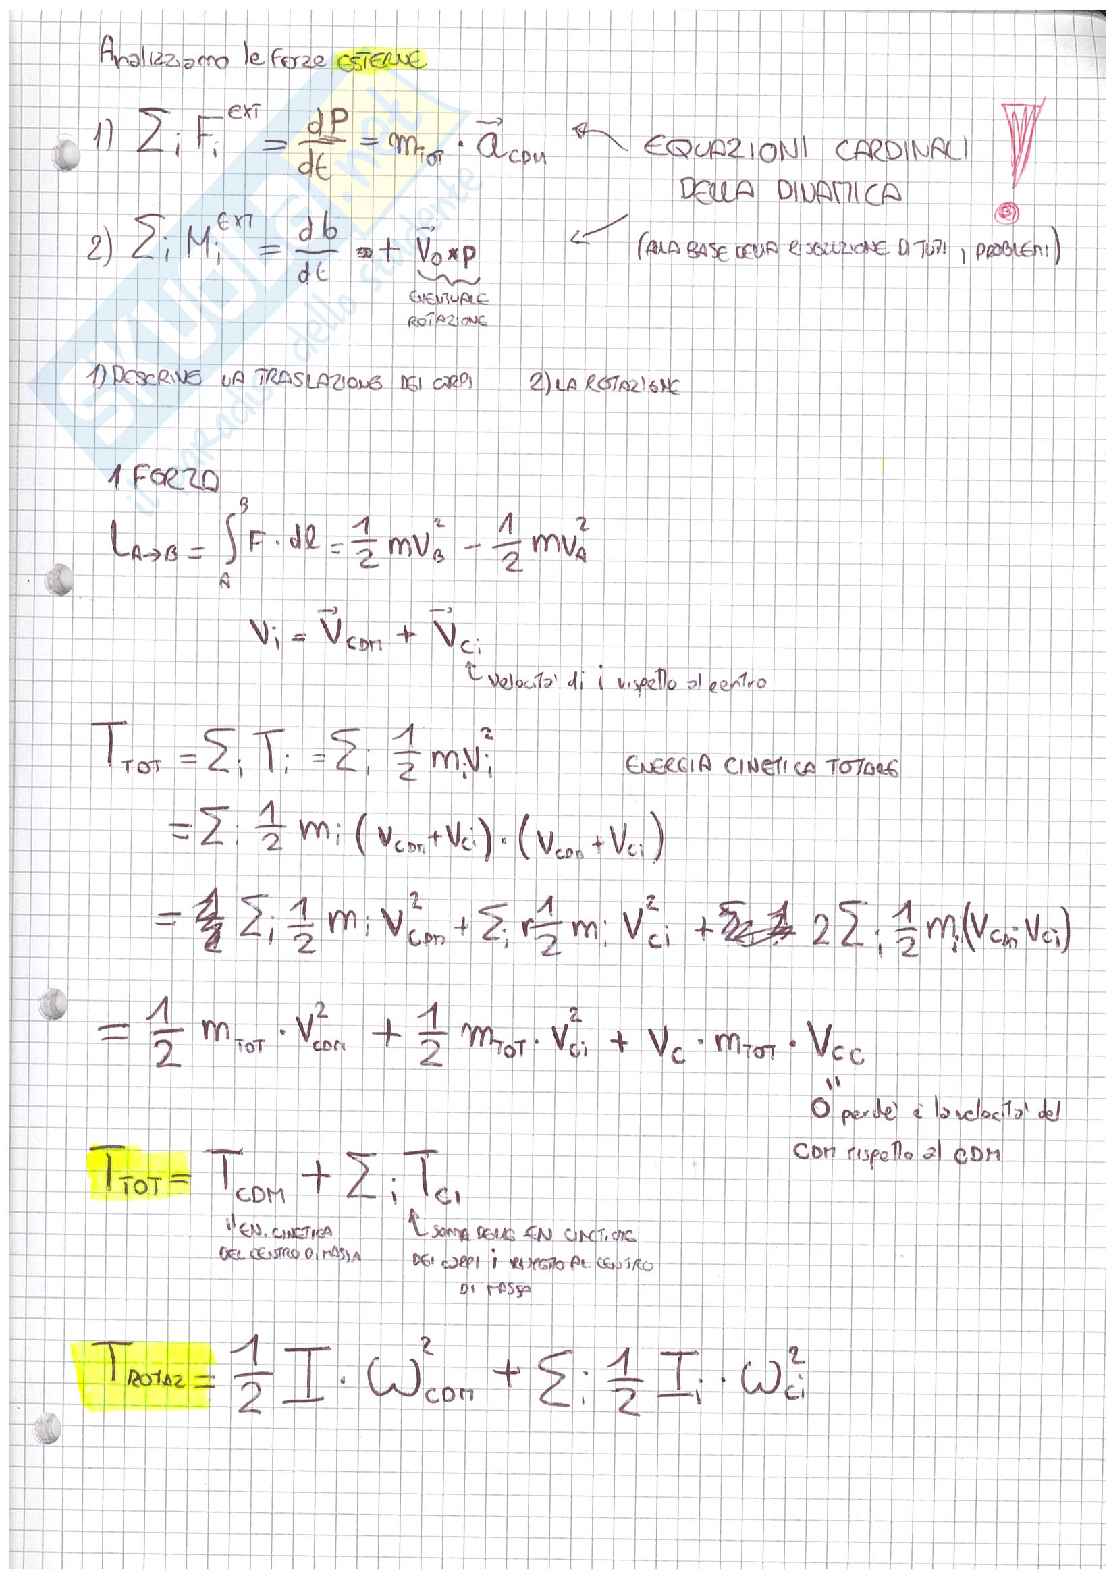 Analizziamo le forze ESTERNE
1) Σi Fi^EXT = dP/dt = m_TOT · a⃗_CDM
EQUAZIONI CARDINALI
DELLA DINAMICA
2) Σi Mi^EXT = db/dt + V⃗o × p
(ALLA BASE DELLA RISOLUZIONE DI TUTTI i PROBLEMI)
EVENTUALE
ROTAZIONE
1) DESCRIVE LA TRASLAZIONE DEI CORPI 2) LA ROTAZIONE
1 FORZA
L_A→B = ∫_A^B F · dl = 1/2 mV_B² - 1/2 mV_A²
Vi = V⃗_CDM + V⃗_Ci
velocità di i rispetto al centro
T_TOT = Σi Ti = Σi 1/2 mi Vi² ENERGIA CINETICA TOTALE
= Σi 1/2 mi (V_CDM + V_Ci) · (V_CDM + V_Ci)
= Σi 1/2 mi V_CDM² + Σi 1/2 mi V_Ci² + 2 Σi 1/2 mi (V_CDM · V_Ci)
= 1/2 m_TOT · V_CDM² + 1/2 m_TOT · V_Ci² + V_C · m_TOT · V_CC
"
0 perché è la velocità del
CDM rispetto al CDM
T_TOT = T_CDM + Σi T_Ci
EN. CINETICA
DEL CENTRO DI MASSA
SOMMA DELLE EN CINETICHE
DEI CORPI i RISPETTO AL CENTRO
DI MASSA
T_ROTAZ = 1/2 I · ω_CDM² + Σi 1/2 Ii · ω_Ci²
SKUOLA.net
il paradiso dello studente